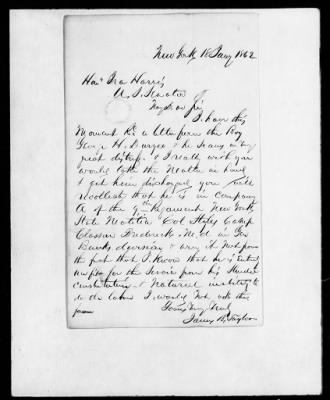 New York 18 Jany 1862
Hon Ira Harris
U. S. Senator
My dear Sir
I have this
Moment Rd a letter from the Boy
George H. Burges & he seems in
great distress & I really wish you
would take the Matter in hand
& get him discharged you will
recollect that he is in company
A of the 9th Regiment New York
State Militia Col Stiles Camp
near Frederick Md in Gen
Banks division & were it Not for
the fact that I Know that he is
unfit for the Service from his slender
constitution & Natural inability to
do the labor I would Not ask this
favor
Yours Very Truly
James B. Taylor